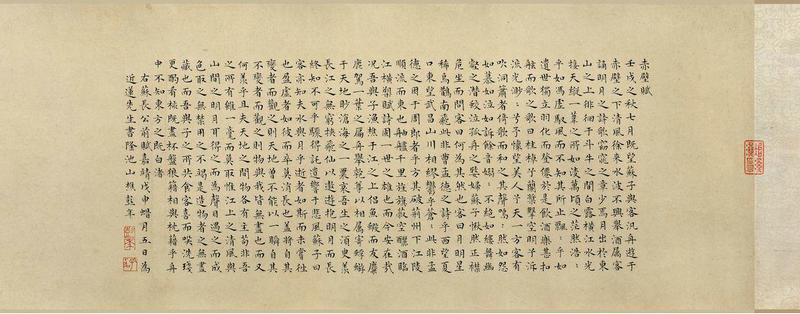 赤壁賦
壬戌之秋七月既望蘇子與客汎舟遊于
赤壁之下清風徐來水波不興舉酒属客
誦明月之詩歌窈窕之章少焉月出於東
山之上徘徊于斗牛之間白露橫江水光
接天縱一葦之所如淩萬頃之茫然浩〻
乎如馮虛馭風而不知其所止飄〻乎如
遺世獨立羽化而登僊於是飲酒樂甚扣
舷而歌之歌曰桂棹兮蘭槳擊空明兮泝
流光渺〻兮予懷望美人兮天一方客有
吹洞簫者倚歌而和之其聲嗚〻然如怨
如慕如泣如訴餘音嫋〻不絕如縷舞幽
壑之潛蛟泣孤舟之嫠婦蘇子愀然正襟
危坐而問客曰何為其然也客曰月明星
稀烏鵲南飛此非曹孟德之詩乎西望夏
口東望武昌山川相繆鬱乎蒼〻此非孟
德之困于周郎者乎方其破荊州下江陵
順流而東也舳艫千里旌旗蔽空釃酒臨
江橫槊賦詩固一世之雄也而今安在哉
况吾與子漁樵于江之上侶魚蝦而友麋
鹿駕一葉之扁舟舉匏尊以相属寄蜉蝣
于天地眇滄海之一粟哀吾生之須臾羨
長江之無窮挾飛仙以遨遊抱明月而長
終知不可乎驟得託遺響于悲風蘇子曰
客亦知夫水與月乎逝者如斯而未嘗往
也盈虛者如彼而卒莫消長也蓋將自其
變者而觀之則天地曾不能以一瞬自其
不變者而觀之則物與我皆無盡也而又
何羨乎且夫天地之間物各有主苟非吾
之所有雖一毫而莫取惟江上之清風與
山間之明月耳得之而為聲目遇之而成
色取之無禁用之不竭是造物者之無盡
藏也而吾與子之所共食客喜而笑洗琖
更酌肴核既盡杯盤狼籍相與枕藉乎舟
中不知東方之既白
右蘇長公前賦嘉靖戊申蜡月五日為
近蓬先生書隆池山樵彭年